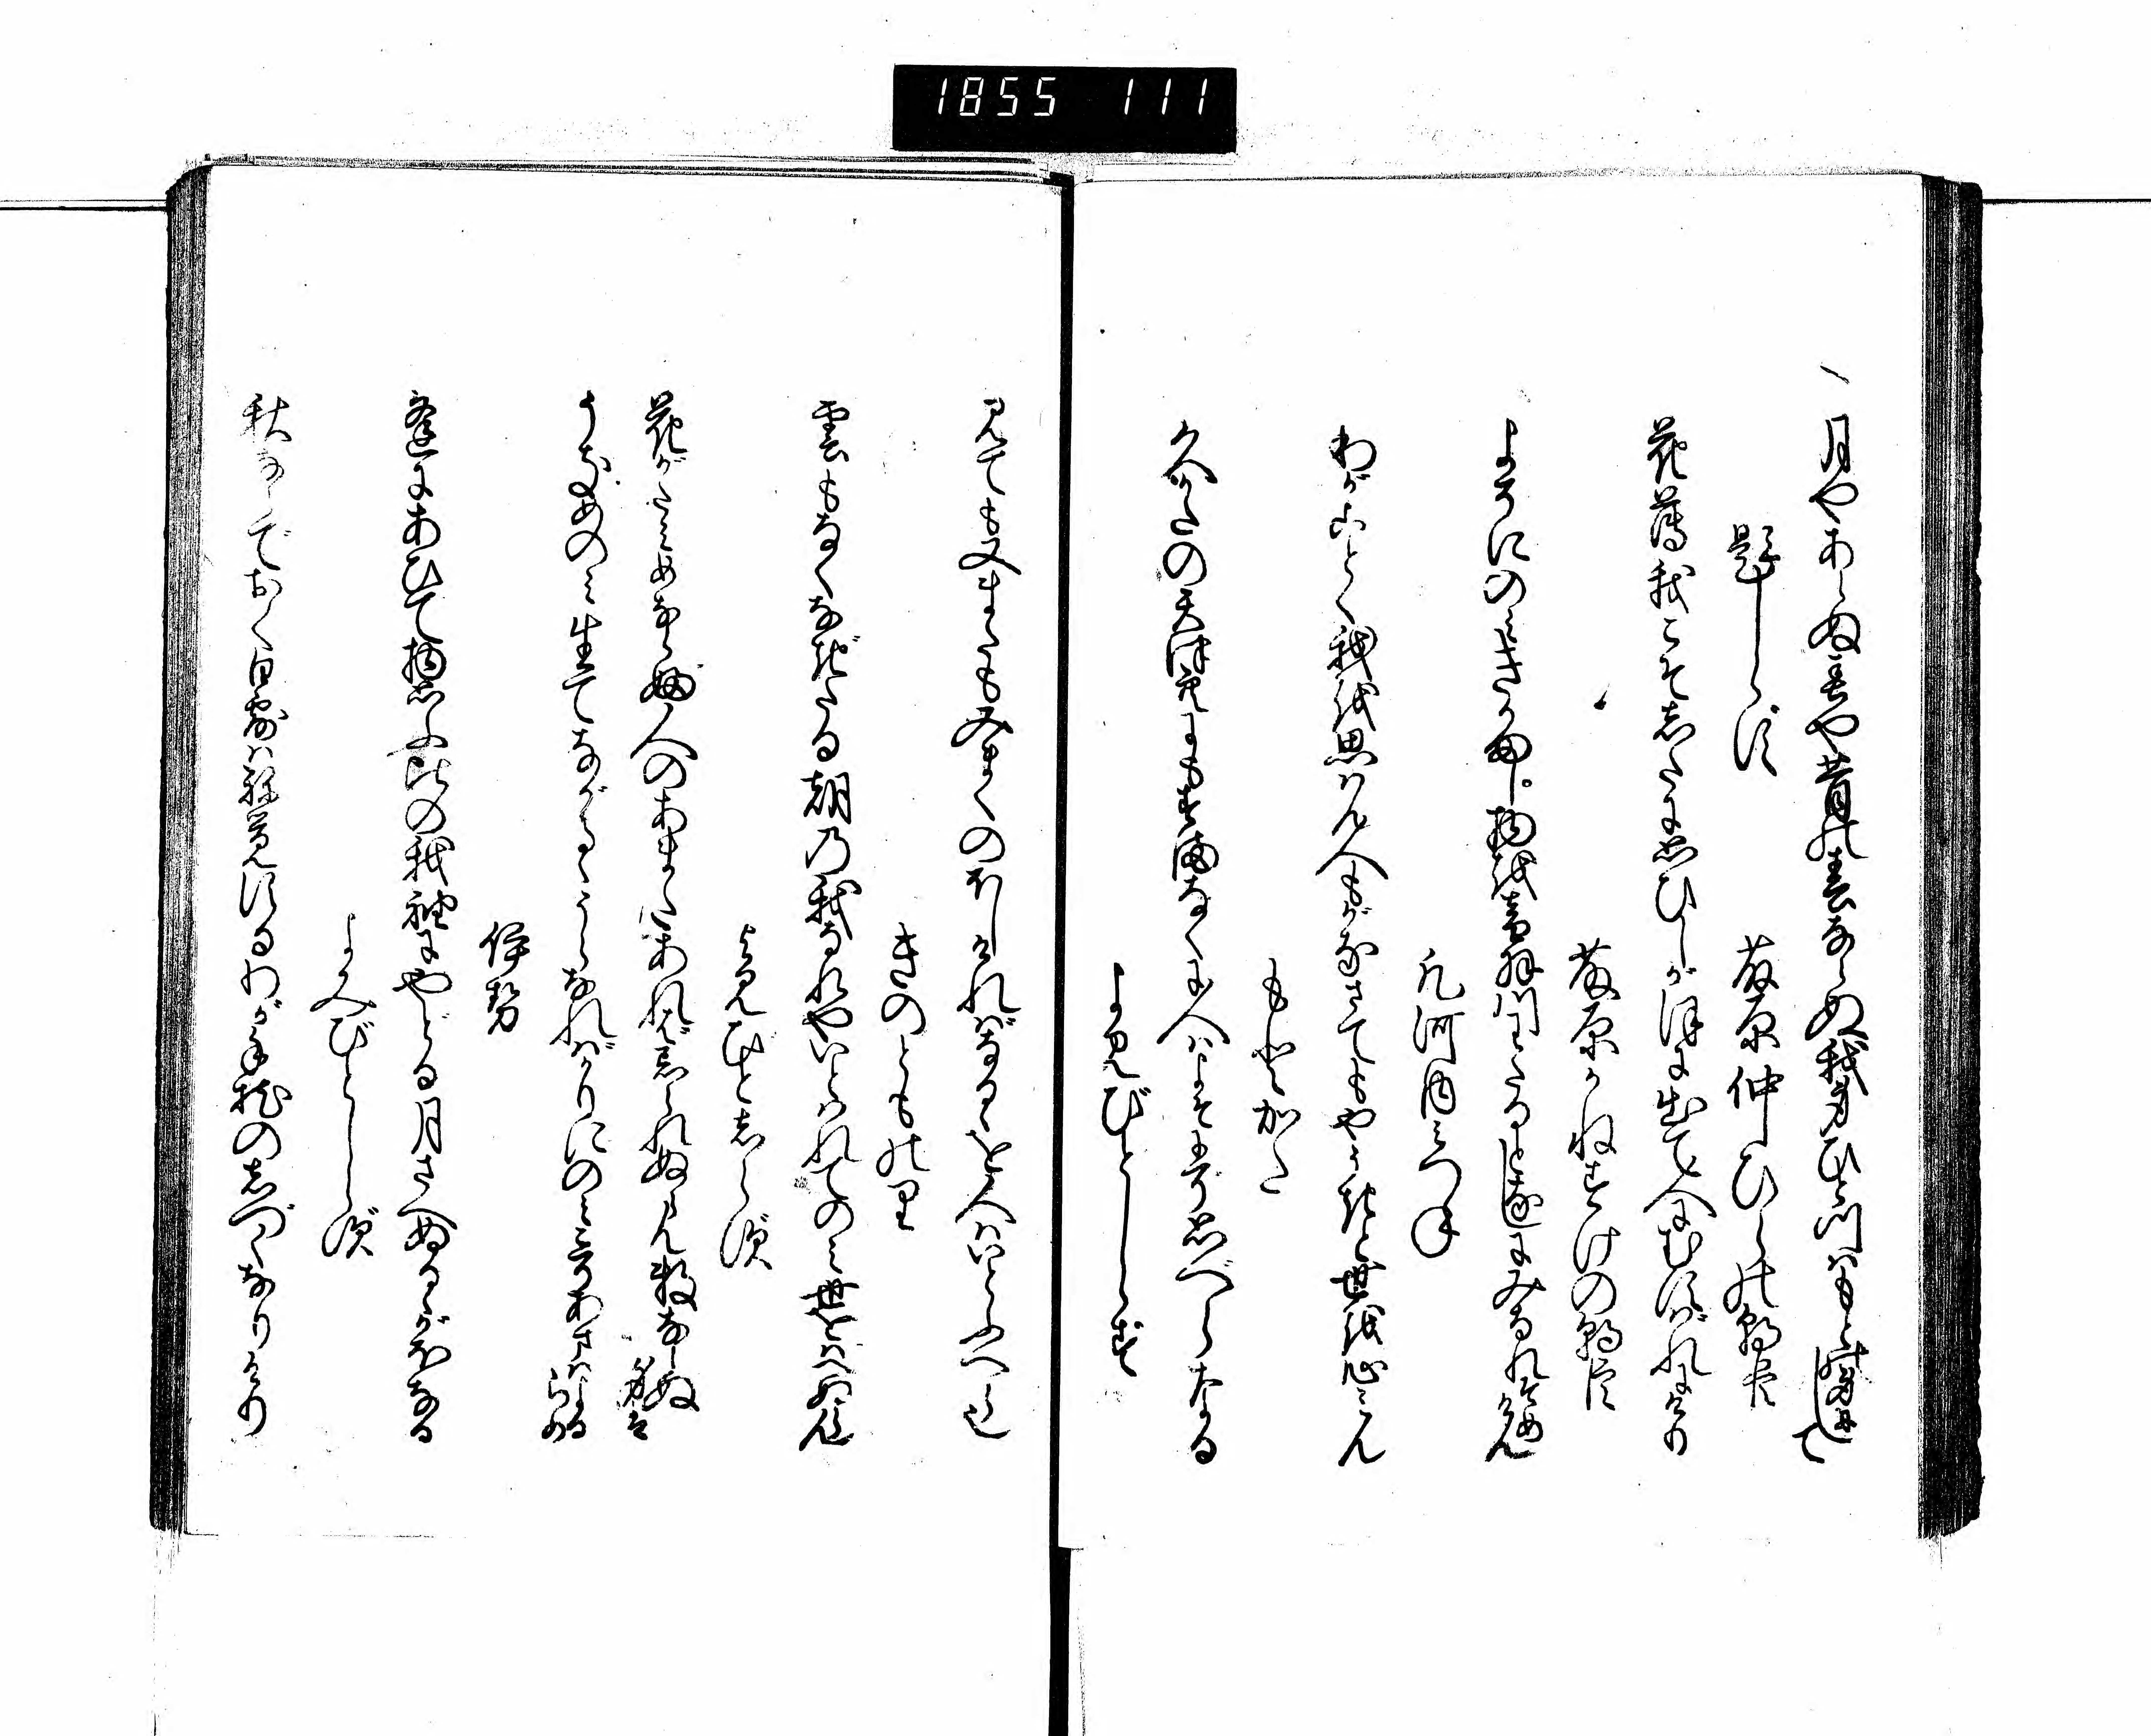 1855 111
月やあらぬ春や昔の春ならぬ我身ひとつはもとの身にして
題しらず
藤原仲ひらの朝臣
花薄我こそしたに思ひしか ほに出て人にむすばれにけり
藤原かねすけの朝臣
よそにのみきかまし物を音羽川わたるとなしにみなれそめけん
凡河内みつね
わがごとく我を思はん人もがなさてもやうきと世を心みん
もとかた
久かたの天津空にもすまなくに人はよそにぞ思べらなる
よみ人しらず
見ても又またもみまくのほしければなるゝを人はいとふべら也
きのとものり
雲もなくなぎたる朝の我なれやいとはれてのみ世をばへぬらん
よみ人しらず
花がたみめならぶ人のあまたあれば忘られぬらん数ならぬ身は
うきめのみ生てながるゝうらなればかりにのみこそあまはよるらめ
伊勢
逢にあひて物思ふ比の我袖にやどる月さへぬるゝがほなる
よみ人しらず
秋ならでおく白露は寝覚するわが手枕のしづくなりけり